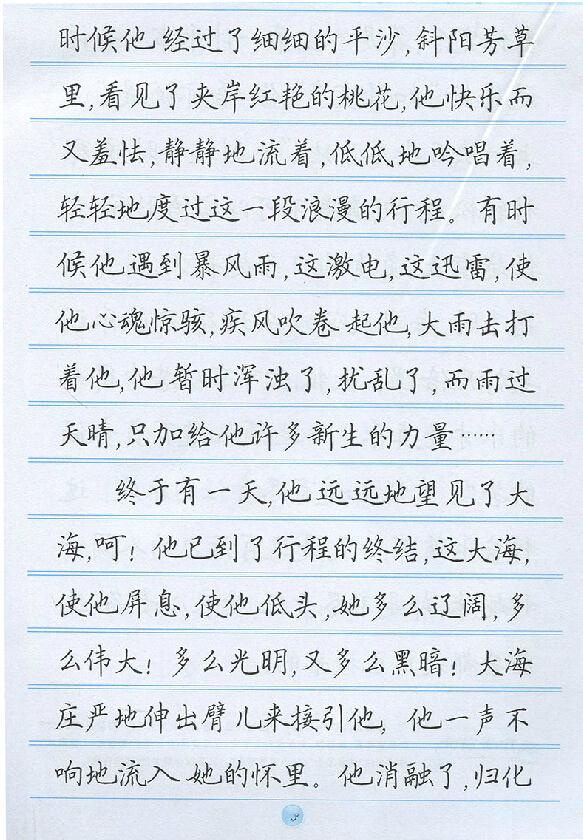 时候他经过了细细的平沙,斜阳芳草
里,看见了夹岸红艳的桃花,他快乐而
又羞怯,静静地流着,低低地吟唱着,
轻轻地度过这一段浪漫的行程。有时
候他遇到暴风雨,这激电,这迅雷,使
他心魂惊骇,疾风吹卷起他,大雨击打
着他,他暂时浑浊了,扰乱了,而雨过
天晴,只加给他许多新生的力量……
终于有一天,他远远地望见了大
海,呵!他已到了行程的终结,这大海,
使他屏息,使他低头,她多么辽阔,多
么伟大!多么光明,又多么黑暗!大海
庄严地伸出臂儿来接引他,他一声不
响地流入她的怀里。他消融了,归化